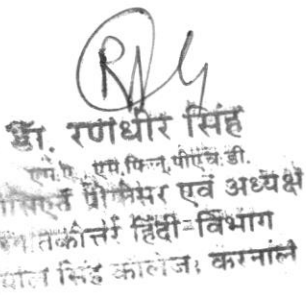 डा. रणधीर सिंह
एम.ए. एम.फिल. पीएच.डी.
प्रोफेसर एवं अध्यक्ष
हिंदी-विभाग
सिंह कालेज, करनाल